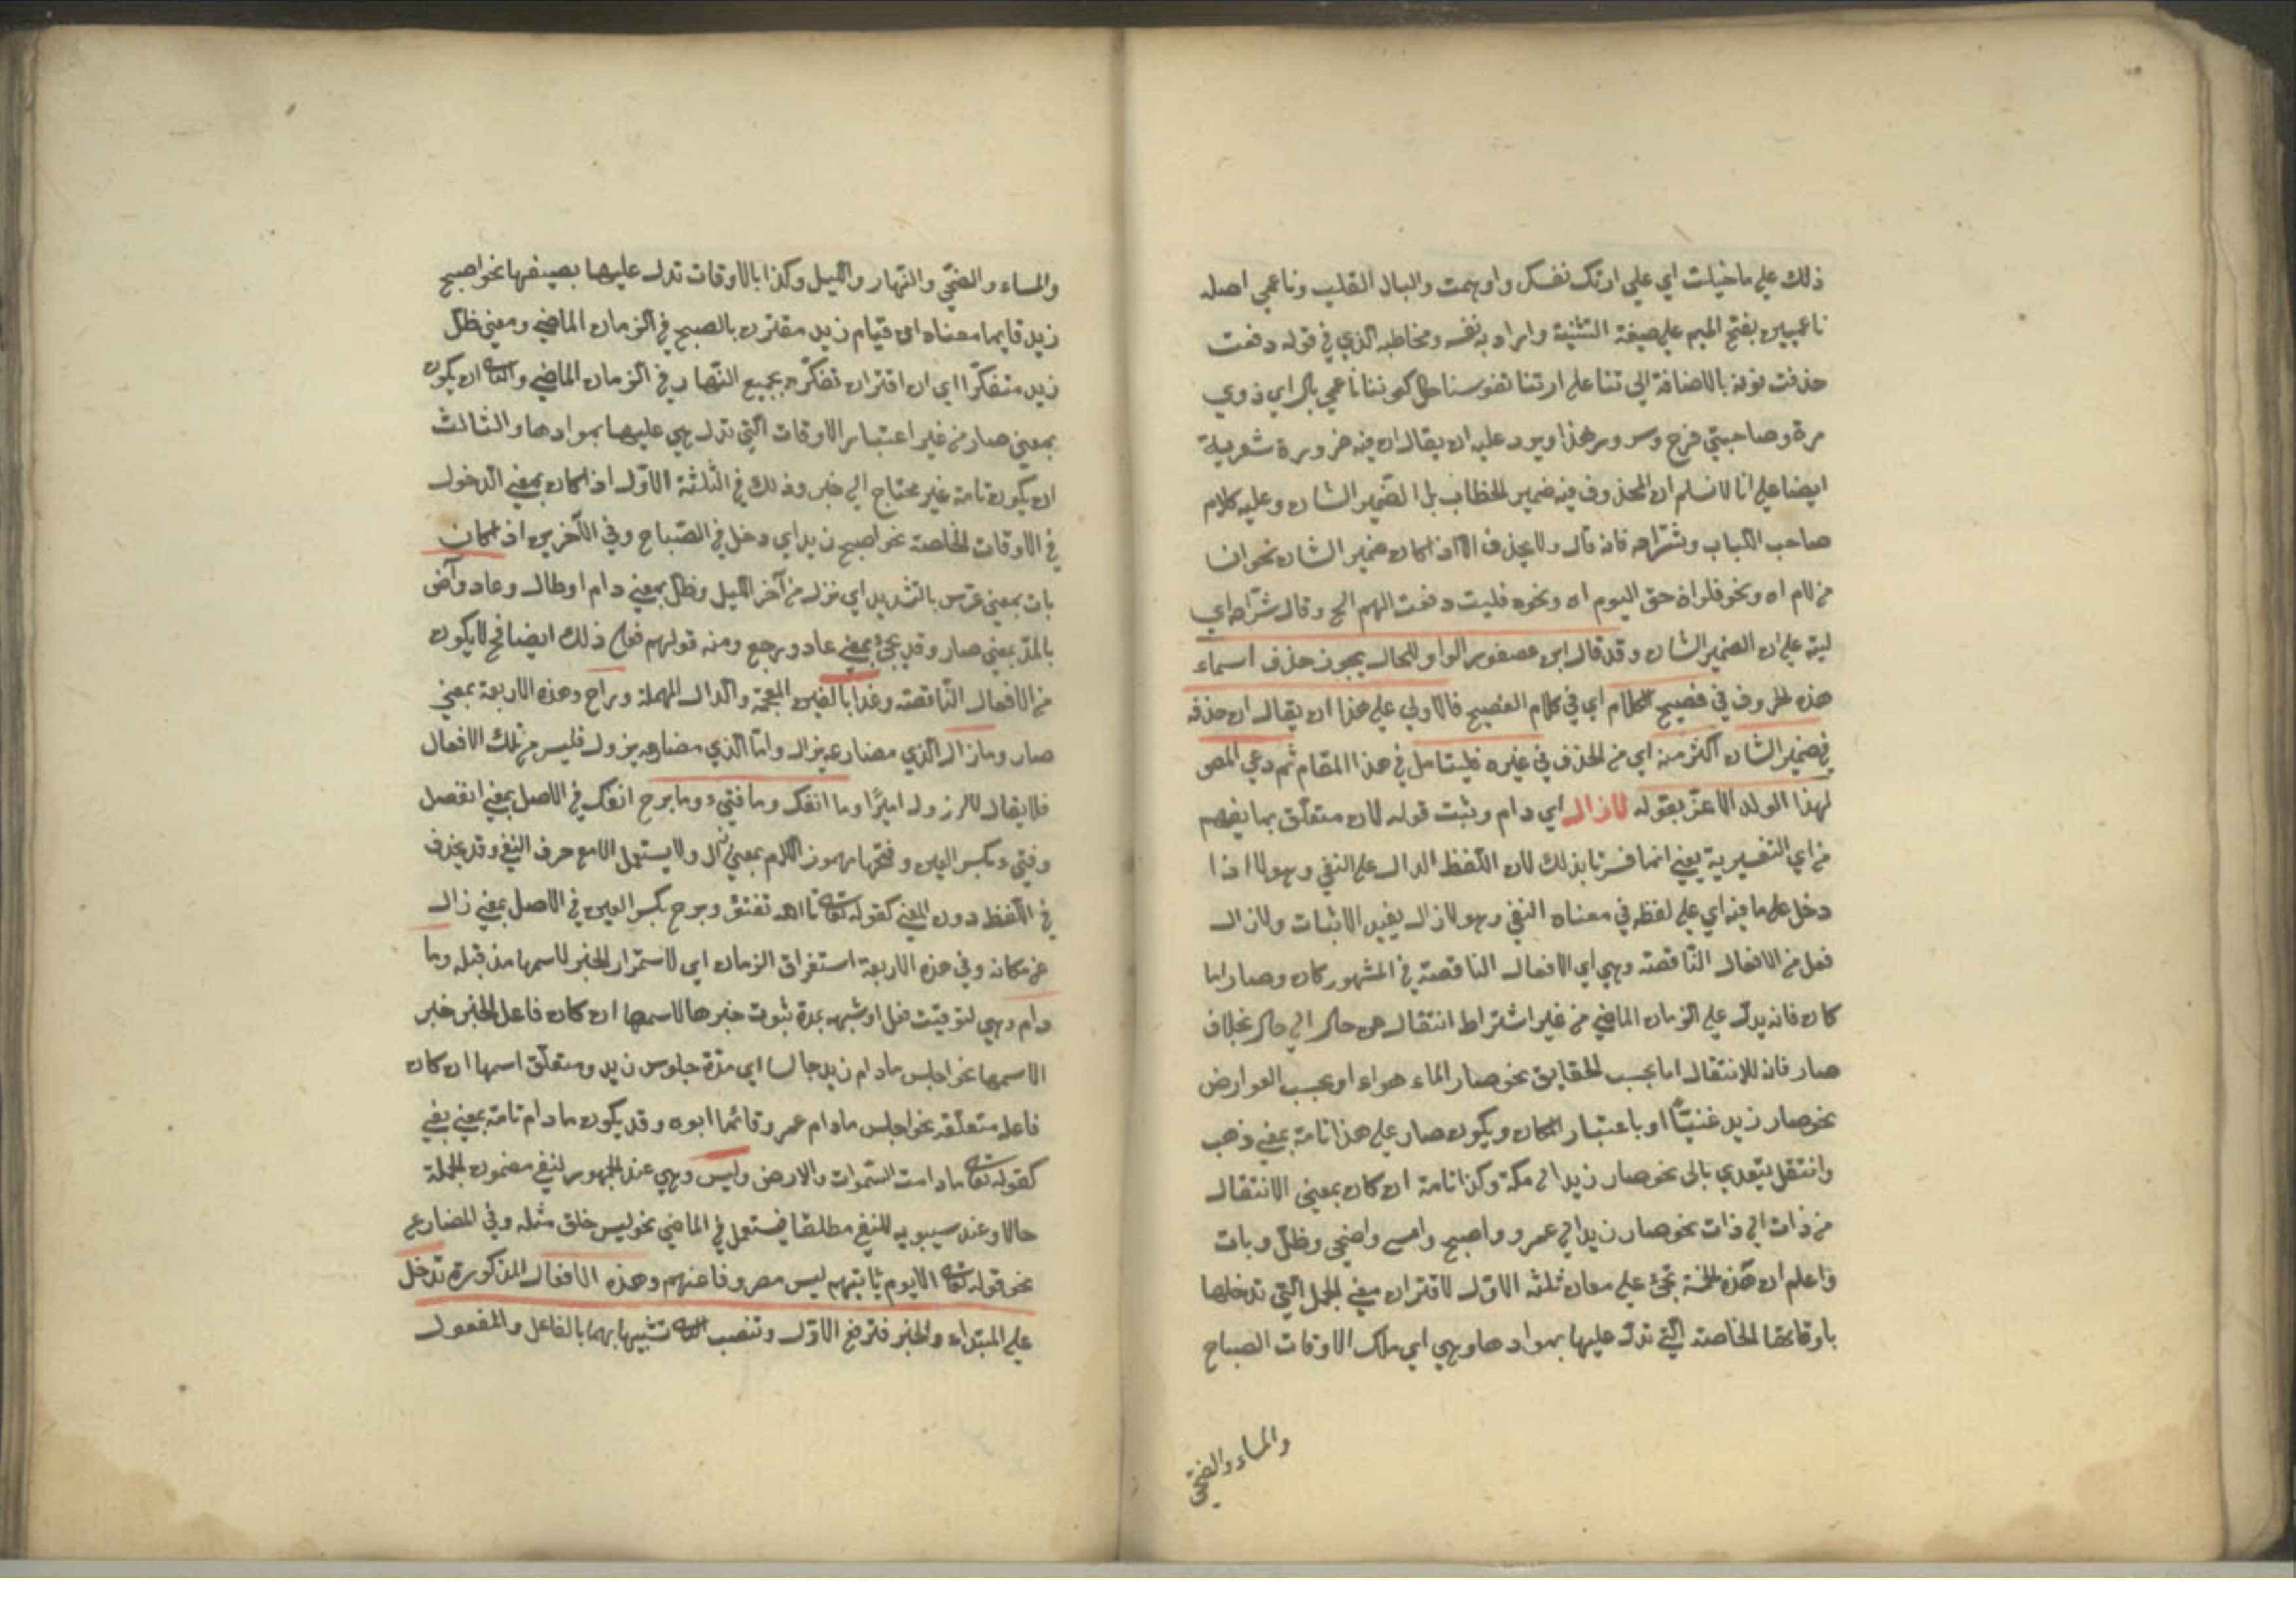 ذلك علي ما خيلت اي علي ارتك نفسك واوهمت والبال القلب وناعمي اصله
ناعميين بفتح الميم علي صيغة التثنية واراد به نفسه ومخاطبه الذي في قوله دفعت
حذفت نونه بالاضافة الي تنا علي ارتنا نفوسنا حال كوننا ناعمي بال اي ذوي
مرة وصاحبتي فرح وسرور هذا ويرد عليه ان يقال ان فيه ضرورة شعرية
ايضا علي انا لا نسلم ان المحذوف فيه ضمير الخطاب بل الضمير الشان وعليه كلام
صاحب اللباب وشراحه فانه قال ولا يحذف الا اذا كان ضمير الشان نحو ان
من لام اه ونحو فلو ان حق اليوم اه ونحوه فليت دفعت الهم الخ وقال شراحه اي
ليته علي ان الضمير الشان وقد قال ابن عصفور الواو للحال يجوز حذف اسماء
هذه الحروف في فصيح الكلام اي في كلام الفصيح فالاولي علي هذا ان يقال ان حذفه
في ضمير الشان اكثر منه اي من الحذف في غيره فليتامل في هذا المقام ثم دعي المص
لهذا الولد الاعز بقوله لازال اي دام وثبت قوله لان متعلق بما يفهم
من اي التفسيرية يعني انما فسرنا بذلك لان اللفظ الدال علي النفي وهو لا اذا
دخل علي ما فيه اي علي لفظ في معناه النفي وهو لازال يفيد الاثبات ولازال
فعل من الافعال الناقصة وهي اي الافعال الناقصة في المشهور كان وصار اما
كان فانه يدل علي الزمان الماضي من غير اشتراط انتقال من حال الي حال بخلاف
صار فانه للانتقال اما بحسب الحقايق نحو صار الماء هواء او بحسب العوارض
نحو صار زيد غنيا او باعتبار المكان ويكون صار علي هذا تامة بمعني ذهب
وانتقل يتعدي بالي نحو صار زيد الي مكة وكذا تامة ان كان بمعني الانتقال
من ذات الي ذات نحو صار زيد الي عمرو واصبح وامسي واضحي وظل وبات
واعلم ان هذه الخمسة تجئ علي معان ثلثة الاول لاقتران معني الجمل التي تدخلها
باوقاتها الخاصة التي تدل عليها بموادها وهي اي ملك الاوقات الصباح
والمساء والضحي
والمساء والضحي والنهار والليل وكذا بالاوقات تدل عليها بصيغها نحو اصبح
زيد قايما معناه ان قيام زيد مقترن بالصبح في الزمان الماضي ومعني ظل
زيد متفكرا اي ان اقتران تفكره بجميع النهار في الزمان الماضي والثاني ان يكون
بمعني صار من غير اعتبار الاوقات التي تدل هي عليها بموادها والثالث
ان يكون تامة غير محتاج الي خبر وذلك في الثلثة الاول اذا كان بمعني الدخول
في الاوقات الخاصة نحو اصبح زيد اي دخل في الصباح وفي الآخرين اذا كان
بات بمعني عرس بالتشديد اي نزل من آخر الليل وظل بمعني دام او طال وعاد وآض
بالمد بمعني صار وقد يجئ بمعني عاد ورجع ومنه قولهم فعل ذلك ايضا فح لا يكون
من الافعال الناقصة وغدا بالغين المعجمة والدال المهملة وراح وهذه الاربعة بمعني
صار وما زال الذي مضارعه يزال واما الذي مضارعه يزول فليس من تلك الافعال
فلا يقال لا يزول اميرا وما انفك وما فتئ وما برح انفك في الاصل بمعني انفصل
وفتئ بكسر العين وفتحها مهموز اللام بمعني زال ولا يستعمل الا مع حرف النفي وقد يحذف
في اللفظ دون المعني كقوله تعالى تا الله تفتؤ وبرح بكسر العين في الاصل بمعني زال
عن مكانه وفي هذه الاربعة استغراق الزمان اي لاستمرار الخبر لاسمها مذ قبله وما
دام وهي لتوقيت فعل او شبهه بمدة ثبوت خبرها لاسمها ان كان فاعل الخبر خبر
الاسمها نحو اجلس ما دام زيد جالسا اي مدة جلوس زيد ومتعلق اسمها ان كان
فاعله متعلقه نحو اجلس ما دام عمرو قائما ابوه وقد يكون ما دام تامة بمعني بقي
كقوله تعالى ما دامت السموات والارض وليس وهي عند الجمهور لنفي مضمون الجملة
حالا وعند سيبويه للنفي مطلقا فيستعمل في الماضي نحو ليس خلق مثله وفي المضارع
نحو قوله تعالى الا يوم ياتيهم ليس مصروفا عنهم وهذه الافعال المذكورة تدخل
علي المبتداء والخبر فترفع الاول وتنصب الثاني تشبيها بهما بالفاعل والمفعول